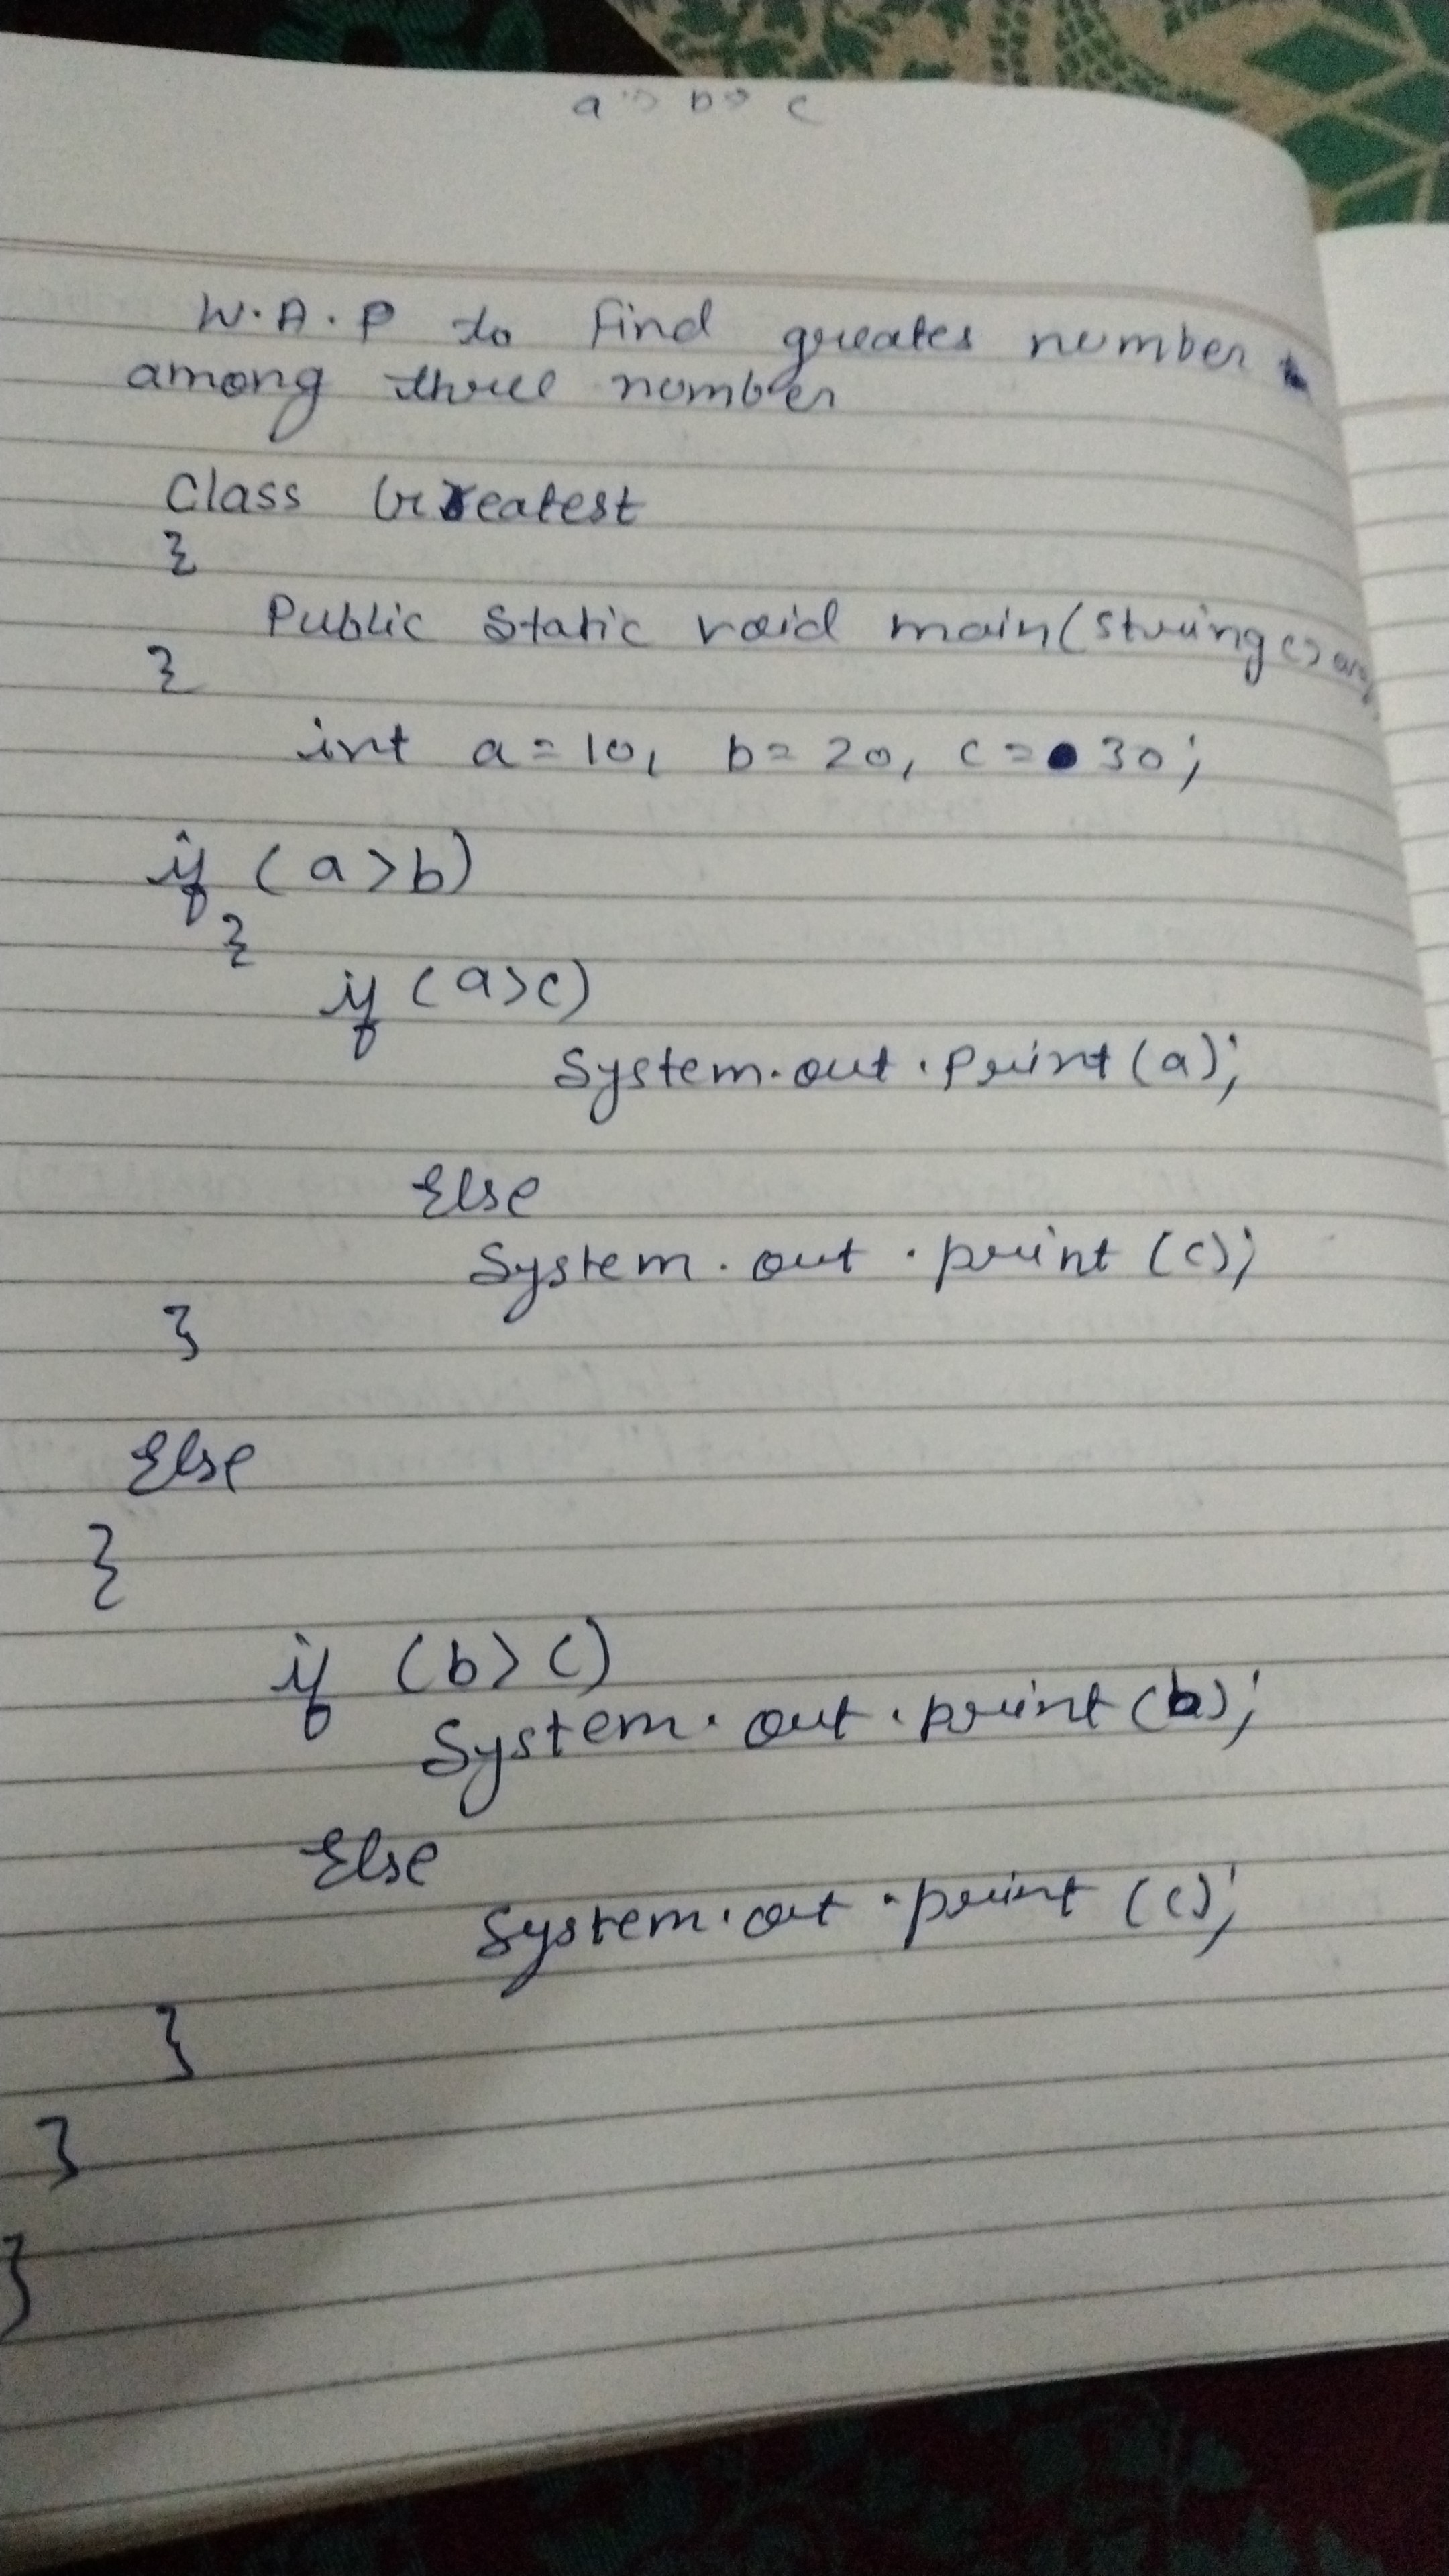 a > b > c
W.A.P to find greates number
among three number
Class Greatest
{
Public static void main(string()
{
int a=10, b=20, c=30;
if (a>b)
{
if (a>c)
System.out.print(a);
Else
System.out.print(c);
}
Else
{
if (b>c)
System.out.print(b);
Else
System.out.print(c);
}
}
}